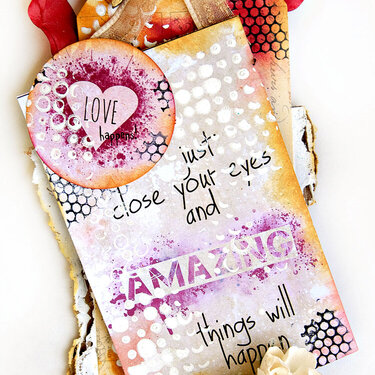 LOVE
happens
just
close your eyes
and
AMAZING
things will
happen